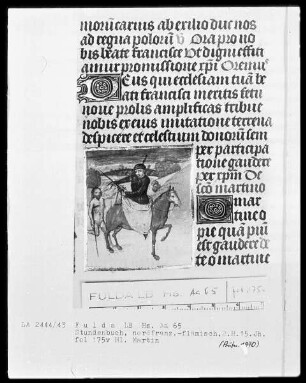 morum carius ab exilio duc nos
ad regna polorum V Ora pro no
bis beate francisce Ut digni effici
amur promissione xpi Oremus
Deus qui ecclesiam tuam be
ati francisci meritis fetu
nove prolis amplificas tribue
nobis ex eius imitatione terrena
despicere et celestium donorum sem
per participa
tione gaudere
per xpm De
sco martino
martine o
pie quam pium
est gaudere de
te o martine
FULDA LD Hs. Aa 65
f 175v
LA 2444/43 Fulda LB Hs. Aa 65
Stundenbuch, nordfranz.-flämisch, 2.H.15.Jh.
fol 175v Hl. Martin